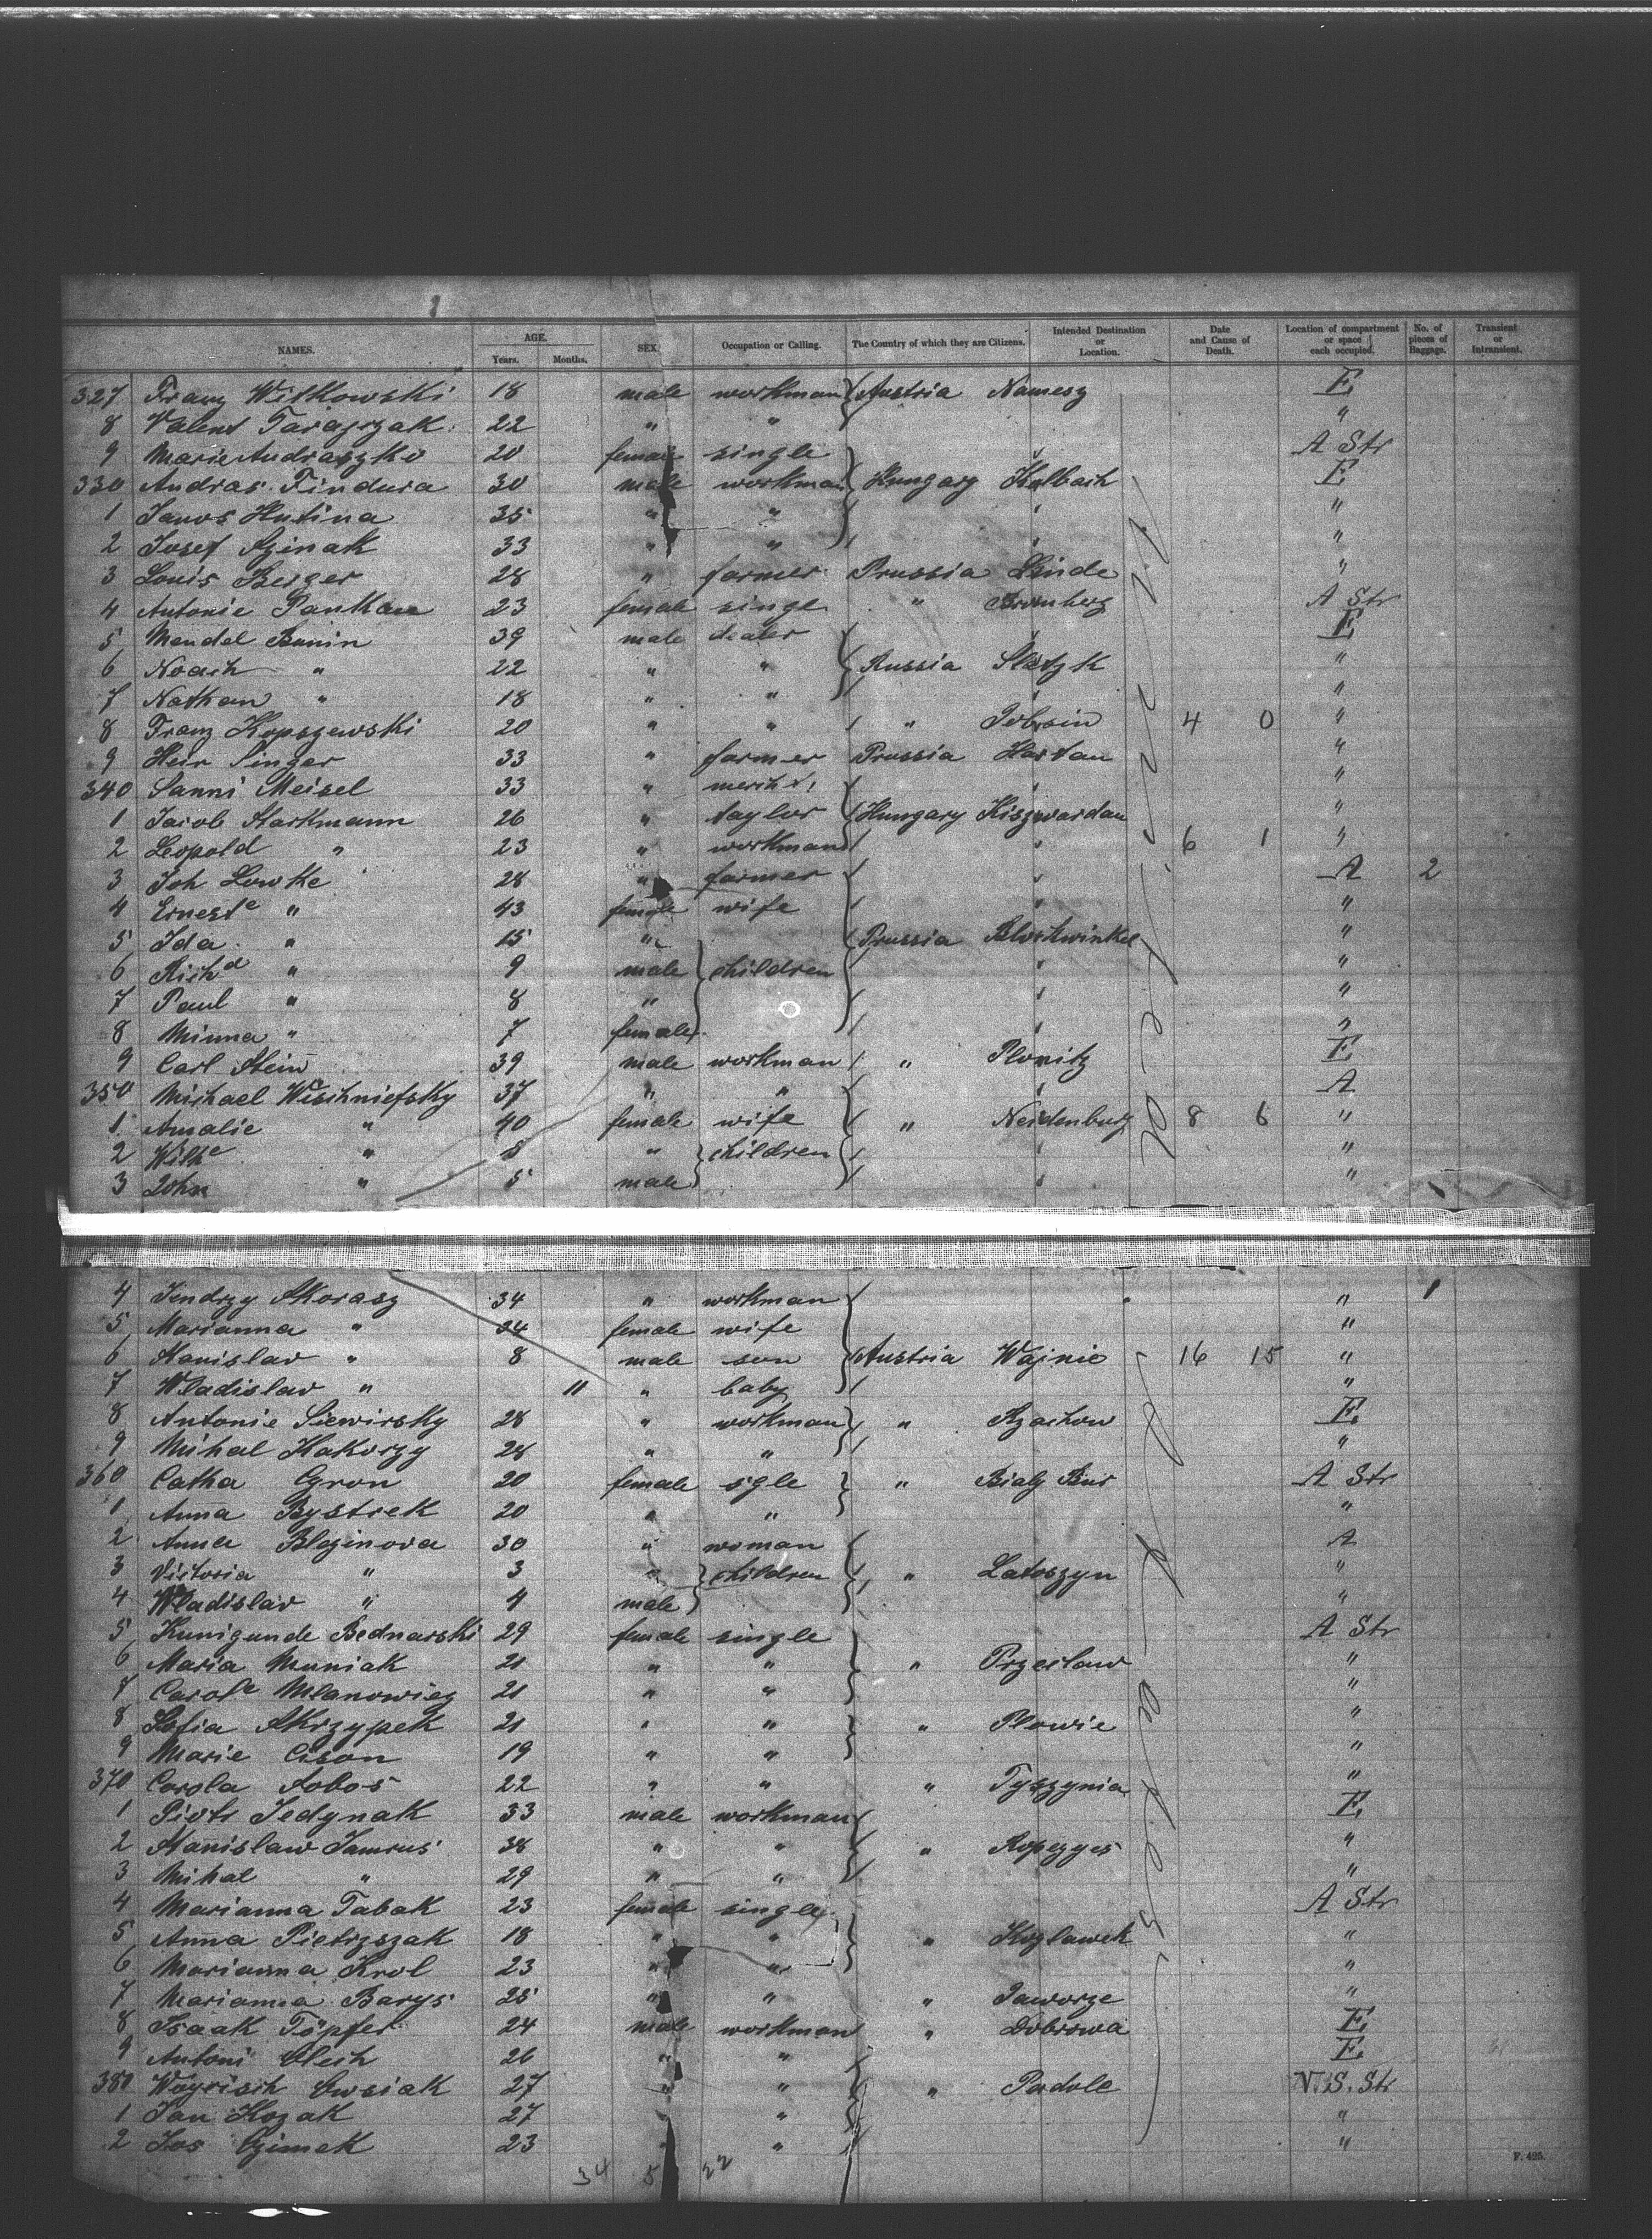 NAMES. AGE. Years. Months. SEX. Occupation or Calling. The Country of which they are Citizens. Intended Destination or Location. Date and Cause of Death. Location of compartment or space each occupied. No. of pieces of Baggage. Transient or Intransient.
327 Franz Witkowski 18 male workman Austria Namesz E.
8 Valent Tarajszak 22 " " "
9 Marie Andraszko 20 female single A Str
330 Andras Findura 30 male workman Hungary Kolbach E
1 Janos Hutina 35 " " "
2 Josef 33 " " "
3 Louis Berger 28 " farmer Prussia Linde "
4 Antonie Pankau 23 female single " Bromberg A Str
5 Mendel Bunin 39 male dealer E
6 Noach " 22 " " Russia Slutzk "
7 Nathan " 18 " " "
8 Franz Kopszewski 20 " " " 4 0 "
9 Heir Singer 33 " farmer Prussia Hartau "
340 Sanni Meisel 33 " "
1 Jacob Starkmann 26 " taylor Hungary Kiszwardau "
2 Leopold " 23 " workman 6 1 "
3 Joh Lowke 28 " farmer A 2
4 Ernest^e " 43 female wife "
5 Ida " 15 " Prussia Blockwinkel "
6 Rich^d " 9 male children "
7 Paul " 8 " "
8 Minna " 7 female "
9 Carl Stein 39 male workman " Plonitz E
350 Michael Wischniefsky 37 " " A
1 Amalie " 40 female wife " Neidenburg 8 6 "
2 Wilh^e " 8 " children "
3 John " 5 male "
4 Jendrzy Skorasz 34 " workman " 1
5 Marianna " 34 female wife "
6 Stanislav " 8 male son Austria Wajnie 16 15 "
7 Wladislav " 11 " baby "
8 Antonie Siewirsky 28 " workman " E.
9 Mihal Kakorzy 28 " " "
360 Catha Gron 20 female sgle " Bialy Bur A Str
1 Anna Bystrek 20 " " "
2 Anna Blazinova 30 " woman A
3 Victoria " 3 " children " Latoszyn "
4 Wladislav " 4 male "
5 Kunigunde Bednarski 29 female single A Str
6 Maria Muniak 21 " " " Przeclaw "
7 Carol^e Mlanowiez 21 " " "
8 Sofia Skrzypek 21 " " " Plowie "
9 Marie Cison 19 " " "
370 Carola Sobos 22 " " " Tyszynia "
1 Piotr Jedynak 33 male workman E.
2 Stanislaw Jamrus 38 " " " Ropezyes "
3 Mihal " 29 " " "
4 Marianna Tabak 23 female single A Str
5 Anna Pietrzszak 18 " " " Kozlawek "
6 Marianna Krol 23 " " "
7 Marianna Barys 25 " " " Jaworze "
8 Isaak Töpfer 24 male workman " Dobrowa E.
9 Antoni Olech 26 " " E.
380 Woyciech Owsiak 27 " " " Padole V.S. Str
1 Jan Kozak 27 " "
2 Jos 23 " " "
34 5 22
F. 425.